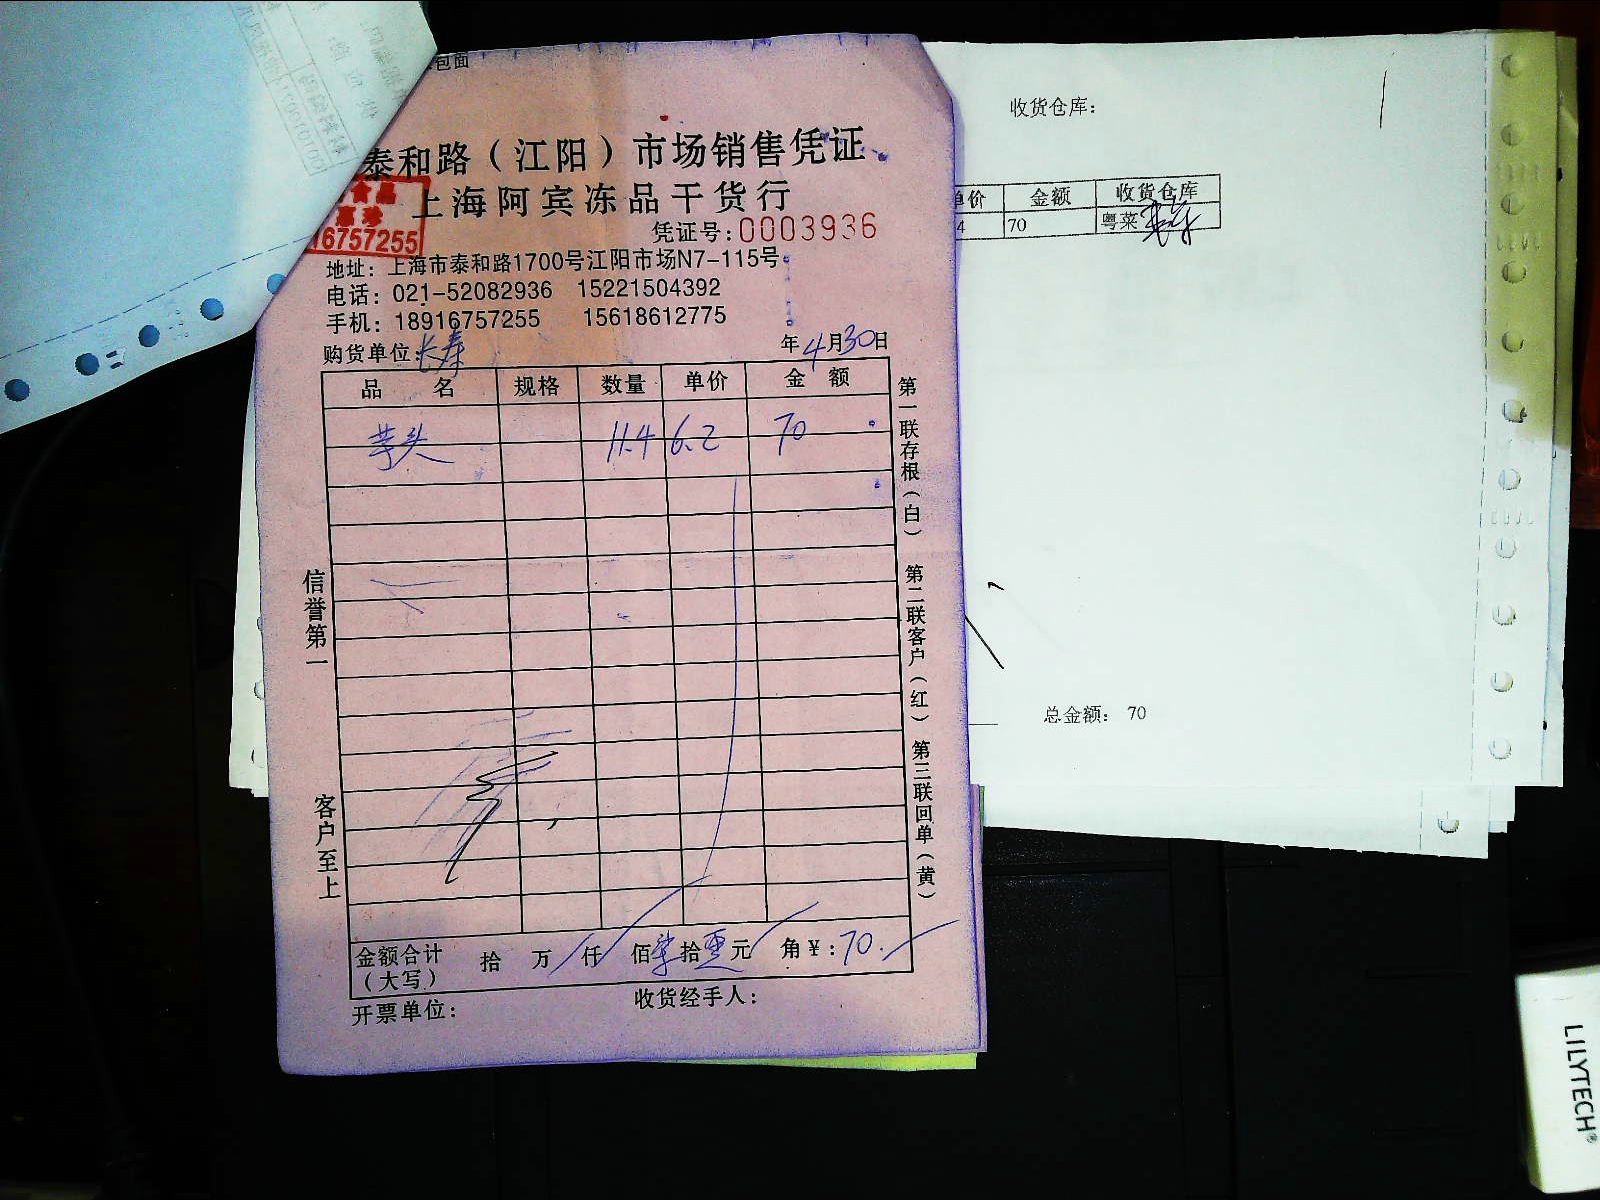 包面
泰和路（江阳）市场销售凭证
上海阿宾冻品干货行
食品
16757255
凭证号:0003936
地址：上海市泰和路1700号江阳市场N7-115号
电话：021-52082936 15221504392
手机：18916757255 15618612775
购货单位:长寿
年4月30日
品名 规格 数量 单价 金额
芋头 11.4 6.2 70
第一联存根（白） 第二联客户（红） 第三联回单（黄）
信誉第一
客户至上
金额合计（大写） 拾 万 仟 佰柒拾零元 角￥:70.
开票单位：
收货经手人：
收货仓库：
单价 金额 收货仓库
4 70 粤菜
总金额： 70
LILYTECH®